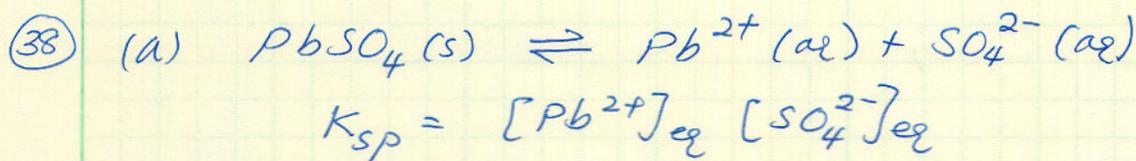 38 (a) PbSO₄ (s) ⇌ Pb²⁺ (aq) + SO₄²⁻ (aq)
Ksp = [Pb²⁺]eq [SO₄²⁻]eq